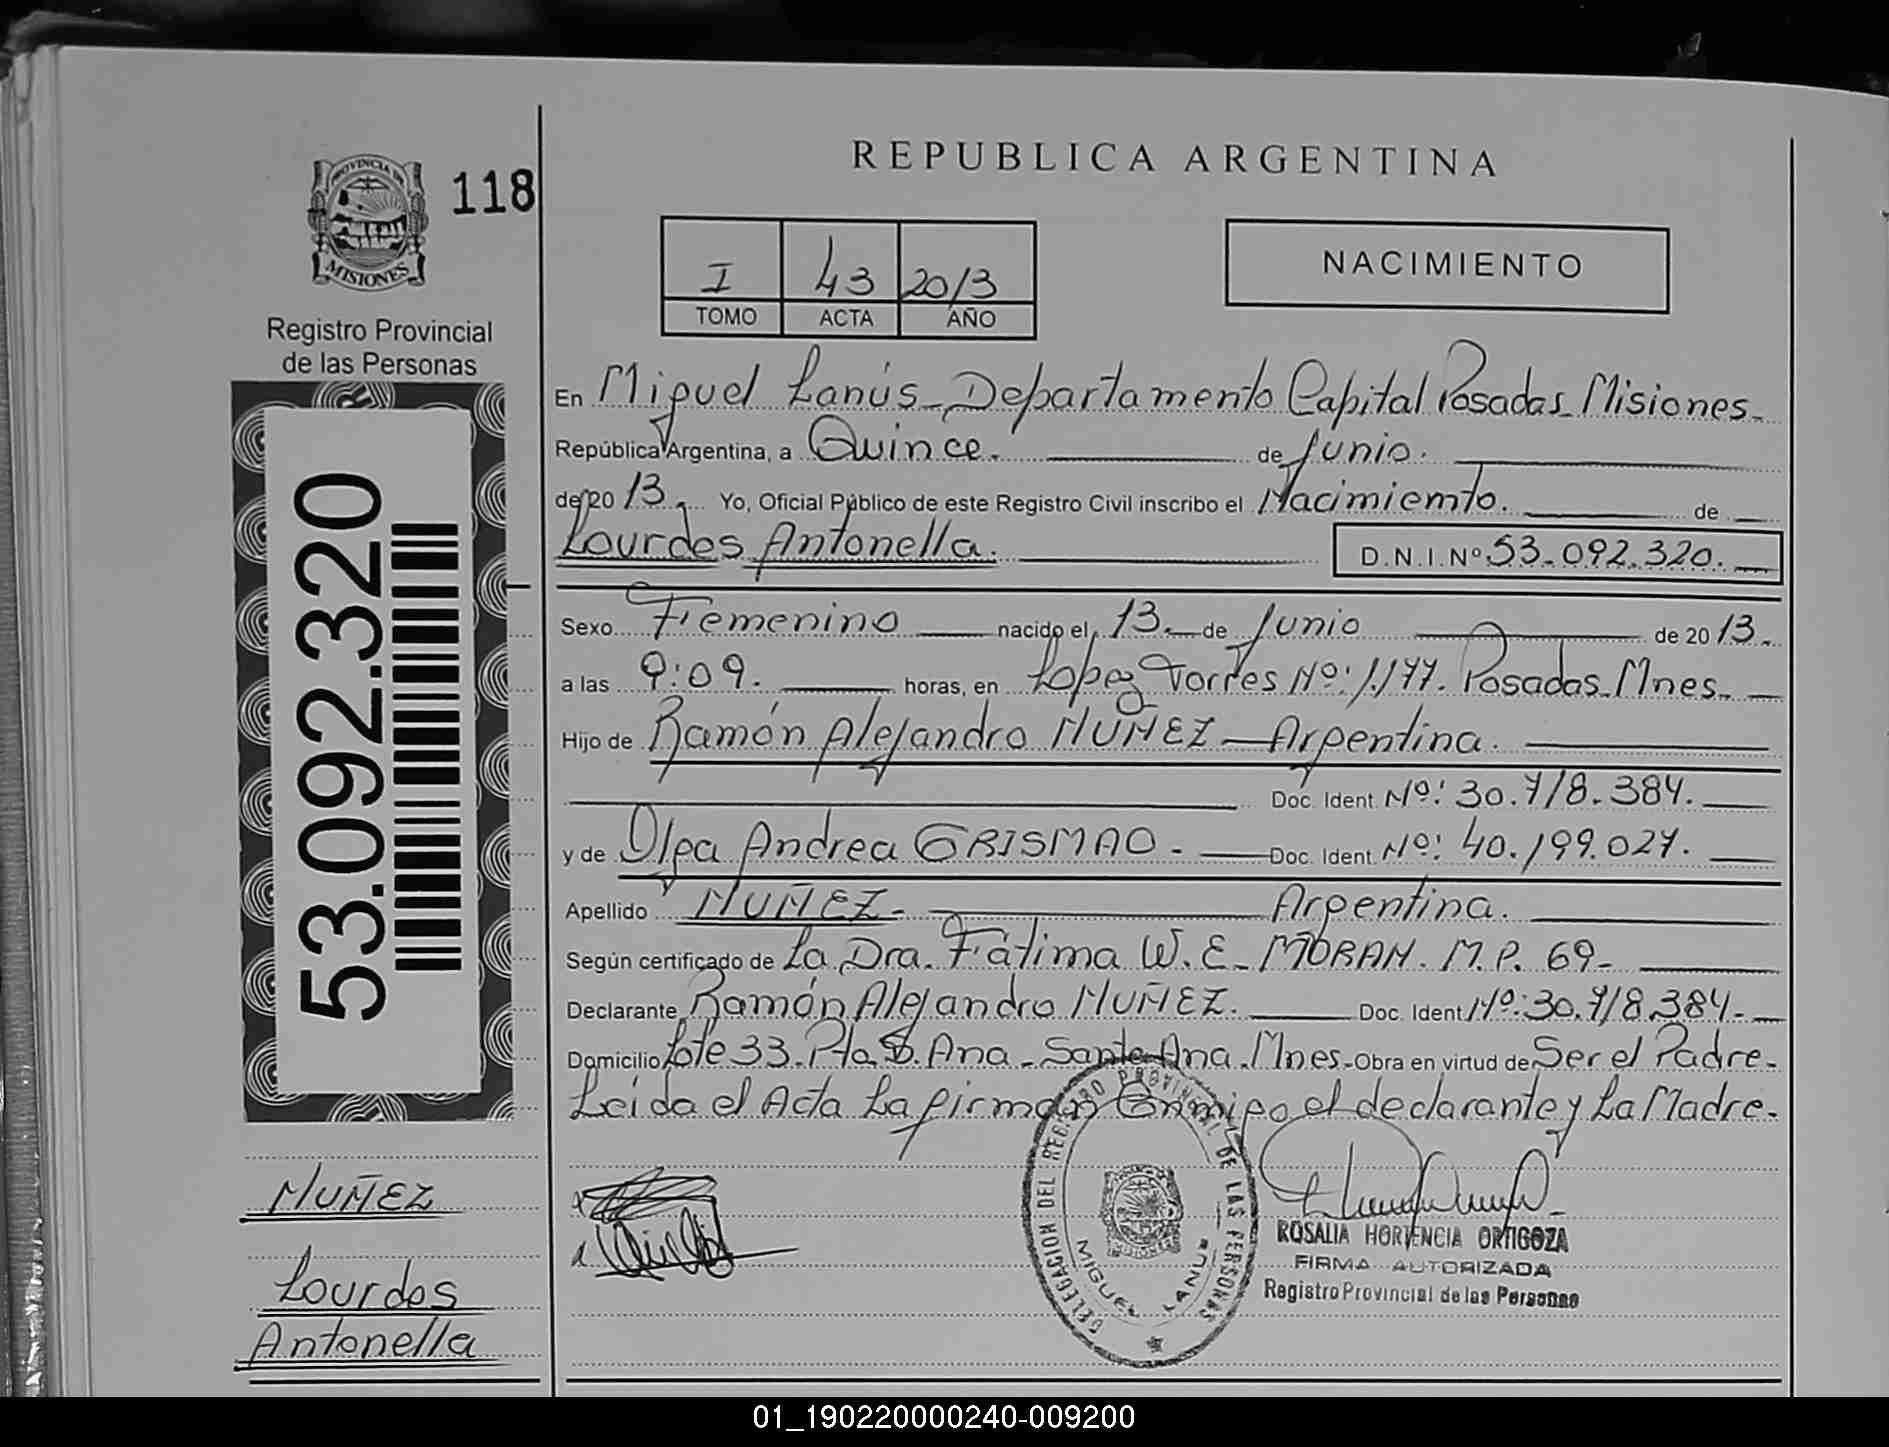 REPUBLICA ARGENTINA
PROVINCIA DE
MISIONES
118
Registro Provincial
de las Personas
I 43 20/3
TOMO ACTA AÑO
NACIMIENTO
53.092.320
En Miguel Lanús - Departamento Capital Posadas - Misiones -
República Argentina, a Quince. de Junio.
de 20 13. Yo, Oficial Público de este Registro Civil inscribo el Nacimiento. de
Lourdes Antonella. D.N.I.Nº 53.092.320.
Sexo Femenino nacido el 13. de Junio de 20 13.
a las 9:09. horas, en Lopez Torres Nº: 1.177. Posadas - Mnes.
Hijo de Ramón Alejandro NUÑEZ - Argentina.
Doc. Ident. Nº: 30.718.384.
y de Olga Andrea GRISMAO - Doc. Ident. Nº: 40.199.027.
Apellido NUÑEZ - Argentina.
Según certificado de La Dra. Fátima W. E. MORAN. M.P. 69 -
Declarante Ramón Alejandro NUÑEZ. Doc. Ident Nº: 30.718.384 -
Domicilio Lote 33. Pto. S. Ana - Santa Ana. Mnes. Obra en virtud de Ser el Padre -
Leída el Acta La firman Conmigo el declarante y La Madre -
NUÑEZ
Lourdes
Antonella
DELEGACION DEL REGISTRO PROVINCIAL DE LAS PERSONAS
MISIONES
MIGUEL LANUS
ROSALIA HORTENCIA ORTIGOZA
FIRMA AUTORIZADA
Registro Provincial de las Personas
01_190220000240-009200